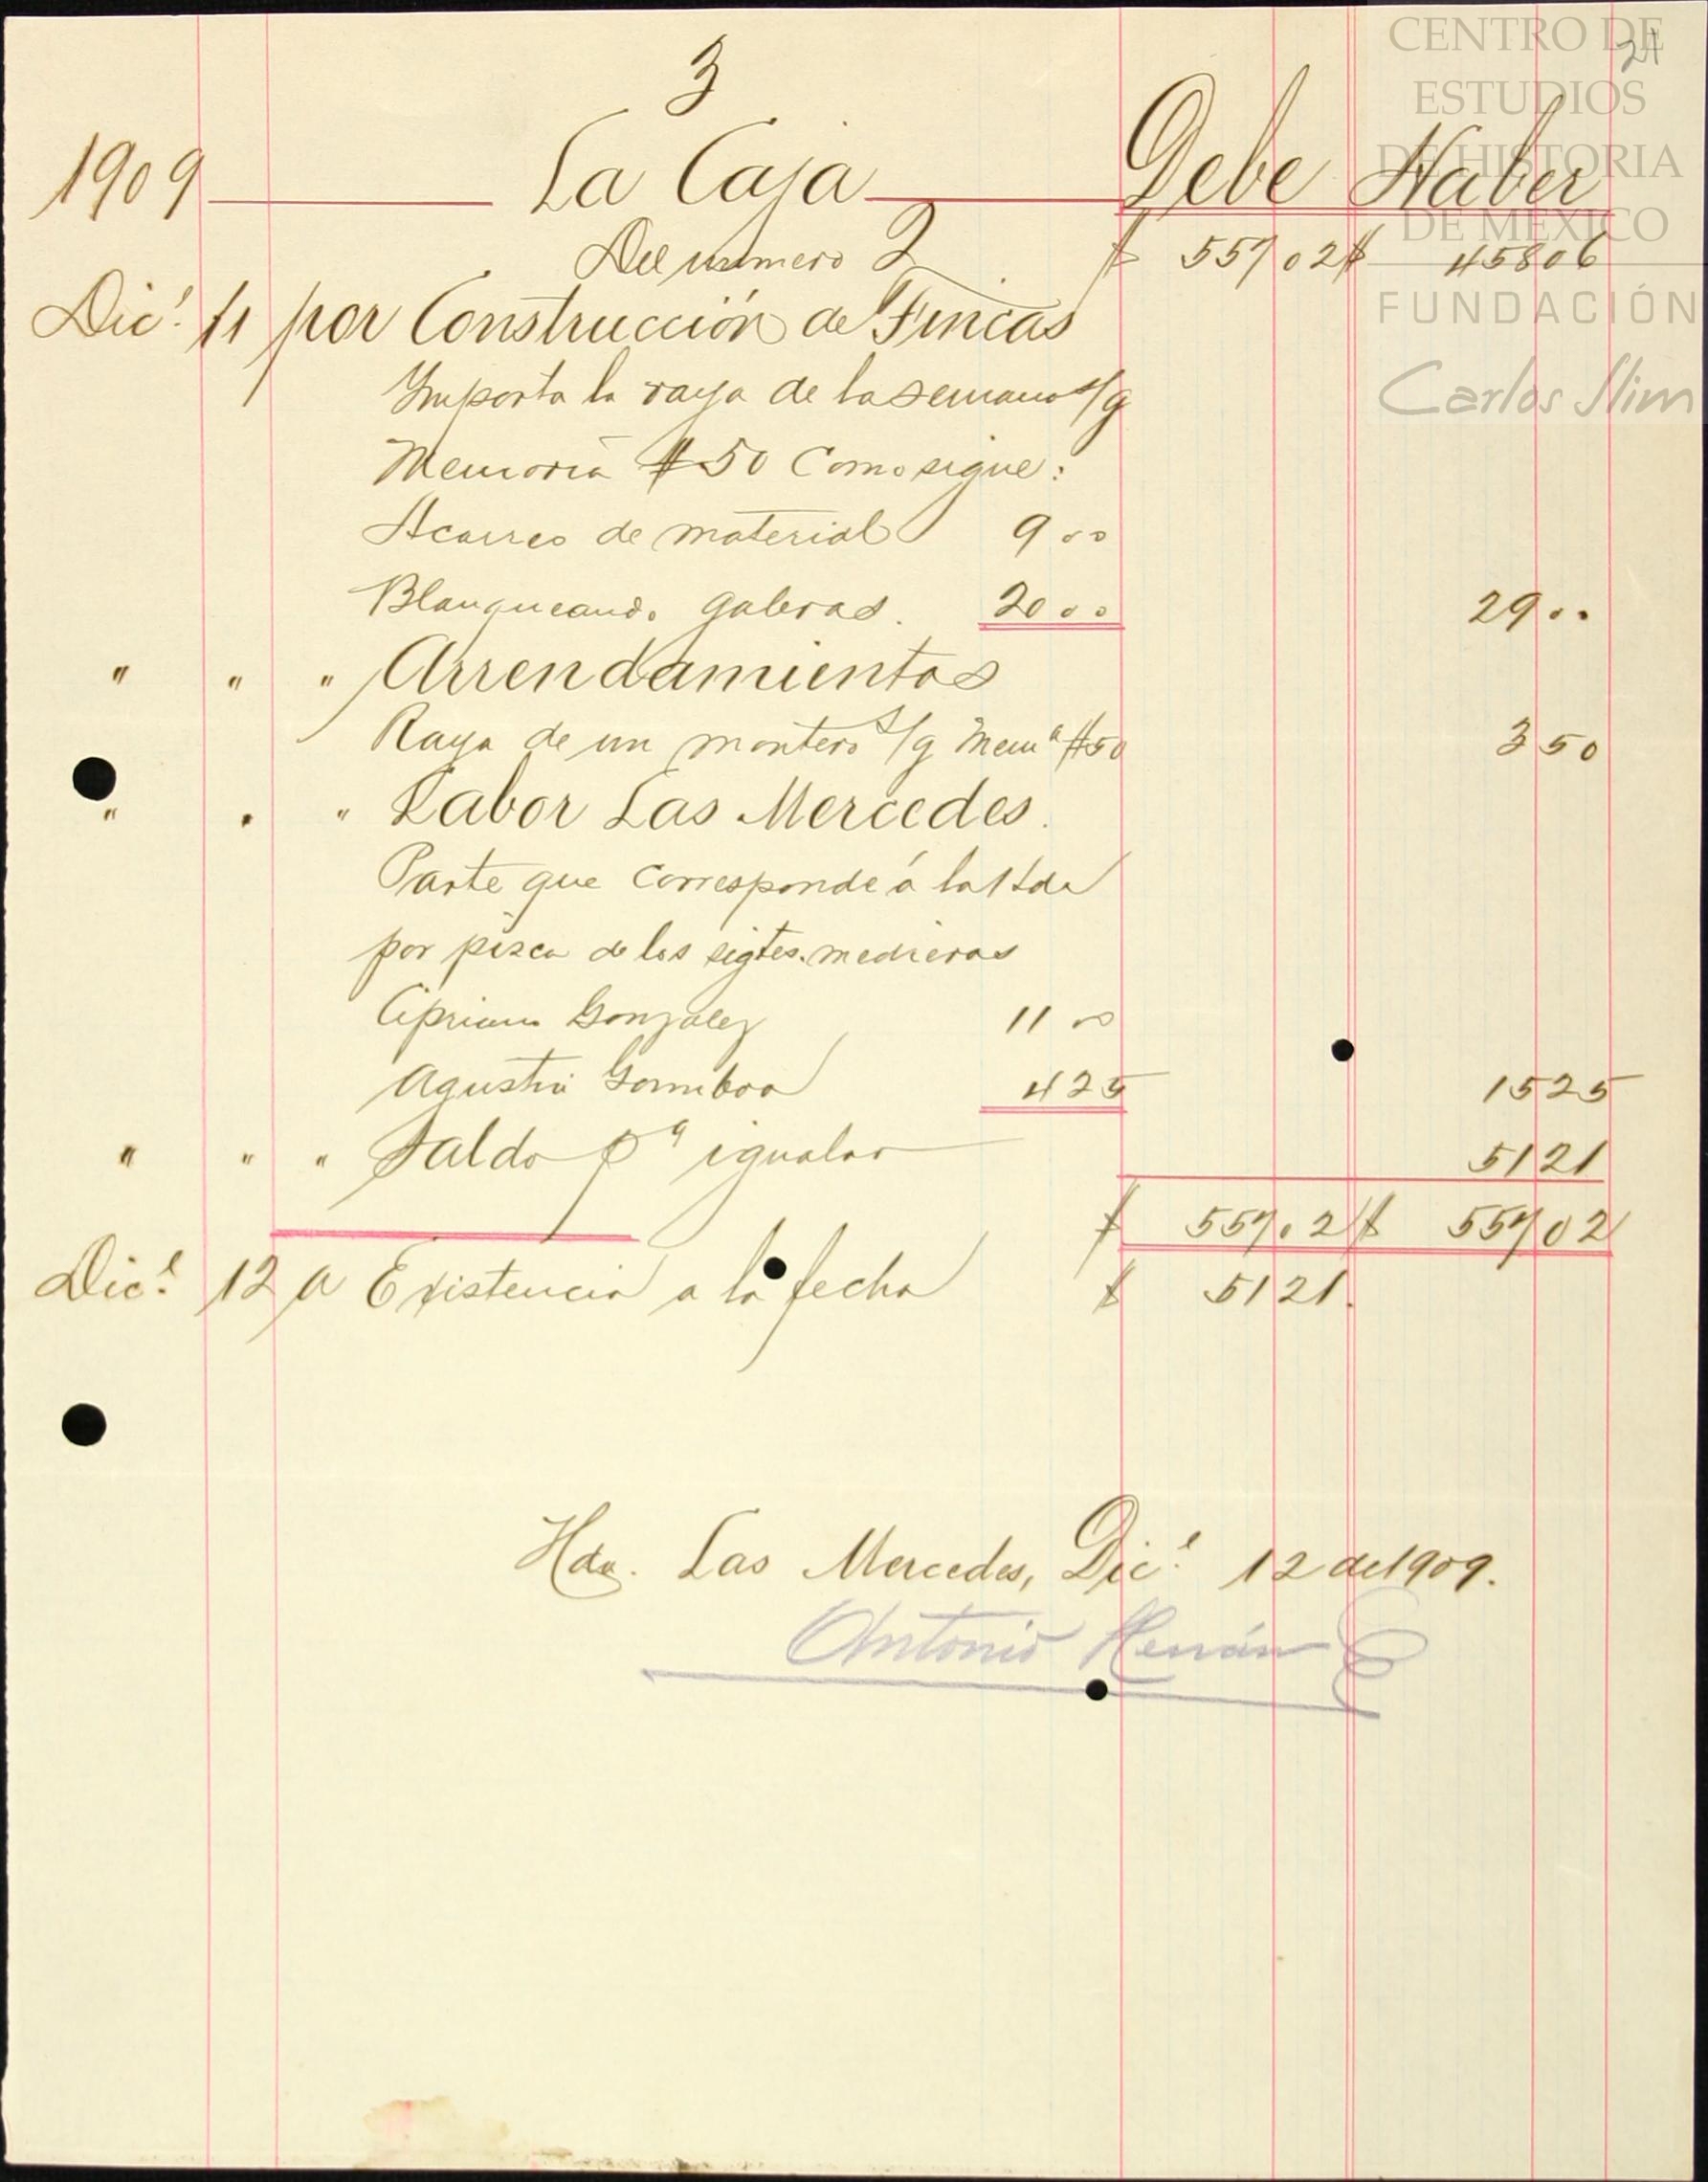 CENTRO DE
ESTUDIOS
DE HISTORIA
DE MÉXICO
FUNDACIÓN
Carlos Slim
21
3
1909 La Caja Debe Haber
Del número 2 $ 557 02 $ 458 06
Dice. 11 por Construcción de Fincas
Importa la raya de la semana s/g
Memoria #50 Como sigue:
Acarreo de material 9 00
Blanqueando galeras. 20 00 29 00
" " " Arrendamientos
Raya de un montero s/g Mema #50 3 50
" " " Labor Las Mercedes.
Parte que corresponde á la Hda
por pisca de los sigtes. medieros
Cipriano Gonzalez 11 00
Agustin Gamboa 4 25 15 25
" " " Saldo pa igualar 51 21
$ 557 02 $ 557 02
Dice. 12 a Existencia a la fecha $ 51 21.
Hda. Las Mercedes, Dice. 12 de 1909.
Antonio Herrán